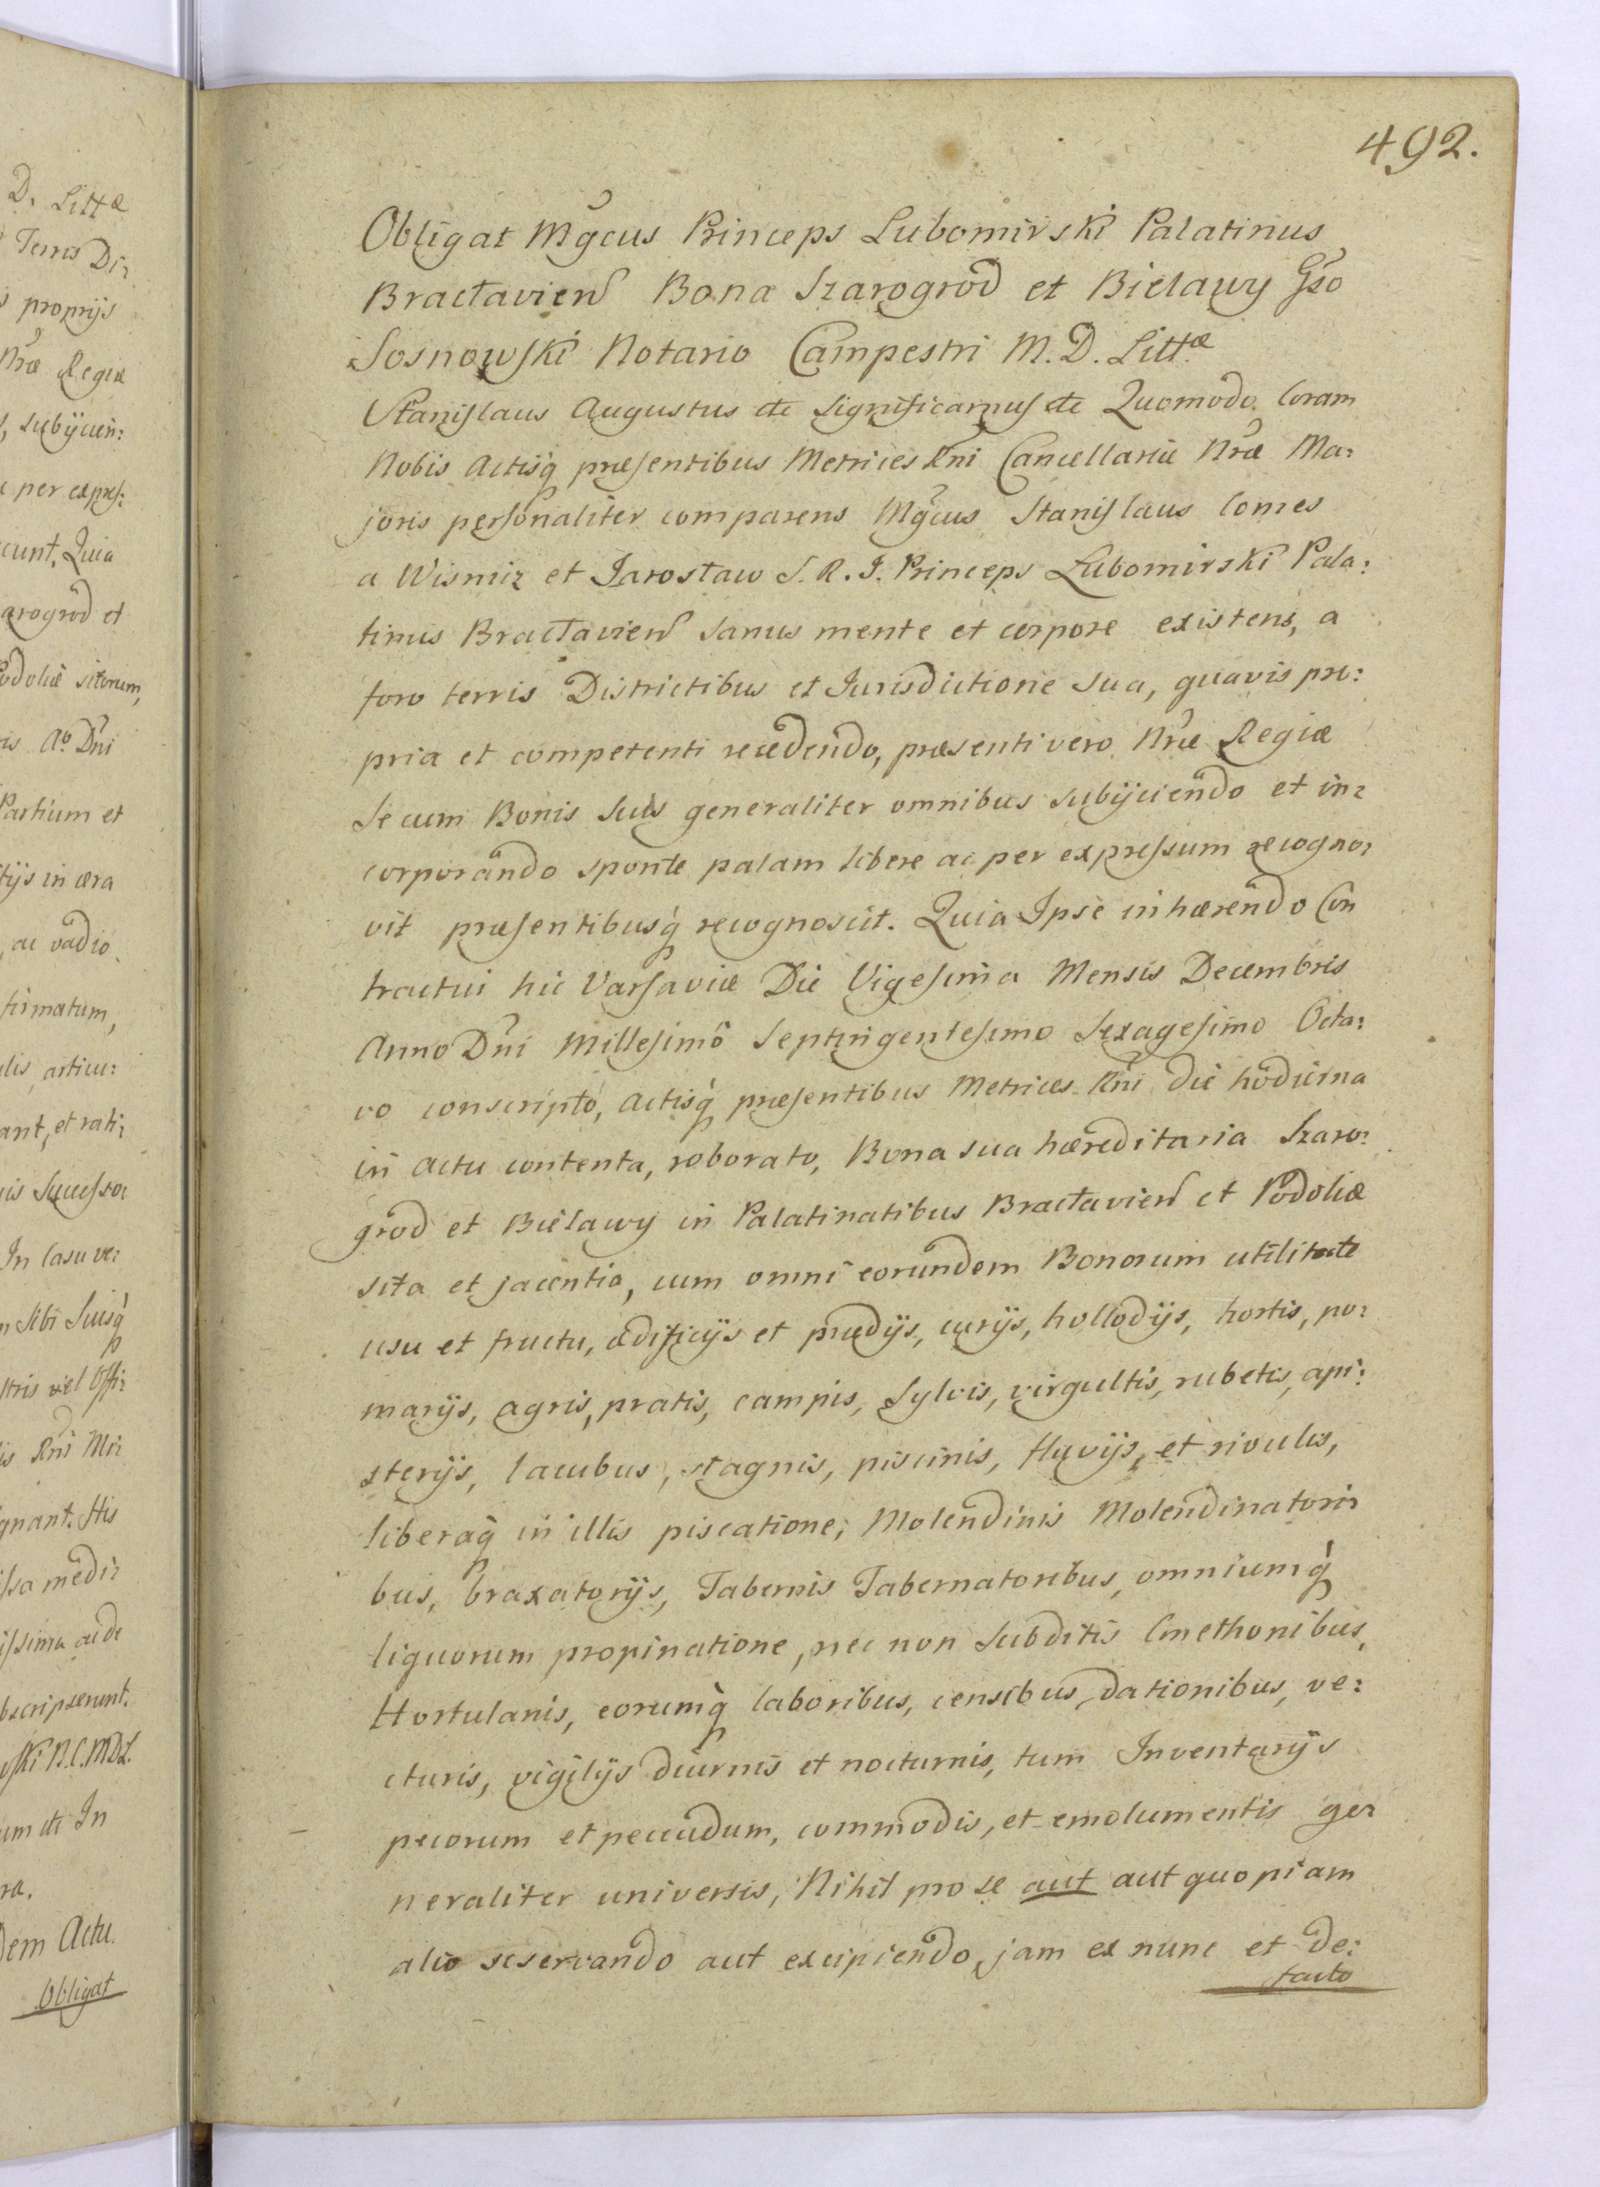 D. Littæ
Terris Di:
proprijs
Nræ Regiæ
subijcien:
per expres:
cunt, Quia
arogrod et
Podoliæ sitorum,
is Aº Dni
Partium et
tijs in æra
ac vadio
firmatum,
lis articu:
ant, et rati:
is Successo:
In Casu ve:
Sibi Suisq
stris vel Offi:
is Rni Mi:
gnant. His
ssa medi:
issima acde
bscripserunt.
wski N.C.M.D.L.
um etc In
ra.
dem Actu.
Obligat
492.
Obligat Mgcus Princeps Lubomirski Palatinus
Bracłavien Bona Szarogrod et Bielawy Gso
Sosnowski Notario Campestri M. D. Littæ
Stanislaus Augustus etc Significamus etc Quomodo Coram
Nobis Actisq præsentibus Metrices Rni Cancellariæ Nræ Ma:
joris personaliter comparens Mgcus Stanislaus Comes
a Wisnicz et Jarosław S. R. I. Princeps Lubomirski Pala:
tinus Bracłavien Sanus mente et corpore existens, a
foro terris Districtibus et Jurisdictione Sua, quavis pro:
pria et competenti recedendo, præsenti vero Nræ Regiæ
Se cum Bonis Suis generaliter omnibus Subijciendo et in:
corporando sponte palam libere ac per expressum recogno:
vit præsentibusq recognoscit. Quia Ipse inhærendo Con
tractui hic Varsaviæ Die Vigesima Mensis Decembris
Anno Dni Millesimo Septingentesimo Sexagesimo Octa:
vo conscripto, Actisq præsentibus Metrices Rni die hodierna
in Actu contenta, roborato, Bona sua hæreditaria Szaro:
grod et Bielawy in Palatinatibus Bracłavien et Podoliæ
sita et jacentia, cum omni eorundem Bonorum utilitate
usu et fructu, ædificijs et prædijs, curijs, hollodijs, hortis, po:
marijs, agris, pratis, campis, Sylvis, virgultis, rubetis, api:
sterijs, lacubus, stagnis, piscinis, fluvijs, et rivulis,
liberaq in illis piscatione; Molendinis Molendinatori:
bus, braxatorijs, Tabernis Tabernatoribus, omniumq
liquorum propinatione, nec non Subditis Cmethonibus,
Hortulanis, eorumq laboribus, censibus, dationibus, ve:
cturis, vigilijs diurnis et nocturnis, tum Inventarijs
pecorum et pecudum, commodis, et emolumentis ge:
neraliter universis, Nihil pro se aut aut quopiam
alio reservando aut excipiendo, jam ex nunc et de:
facto